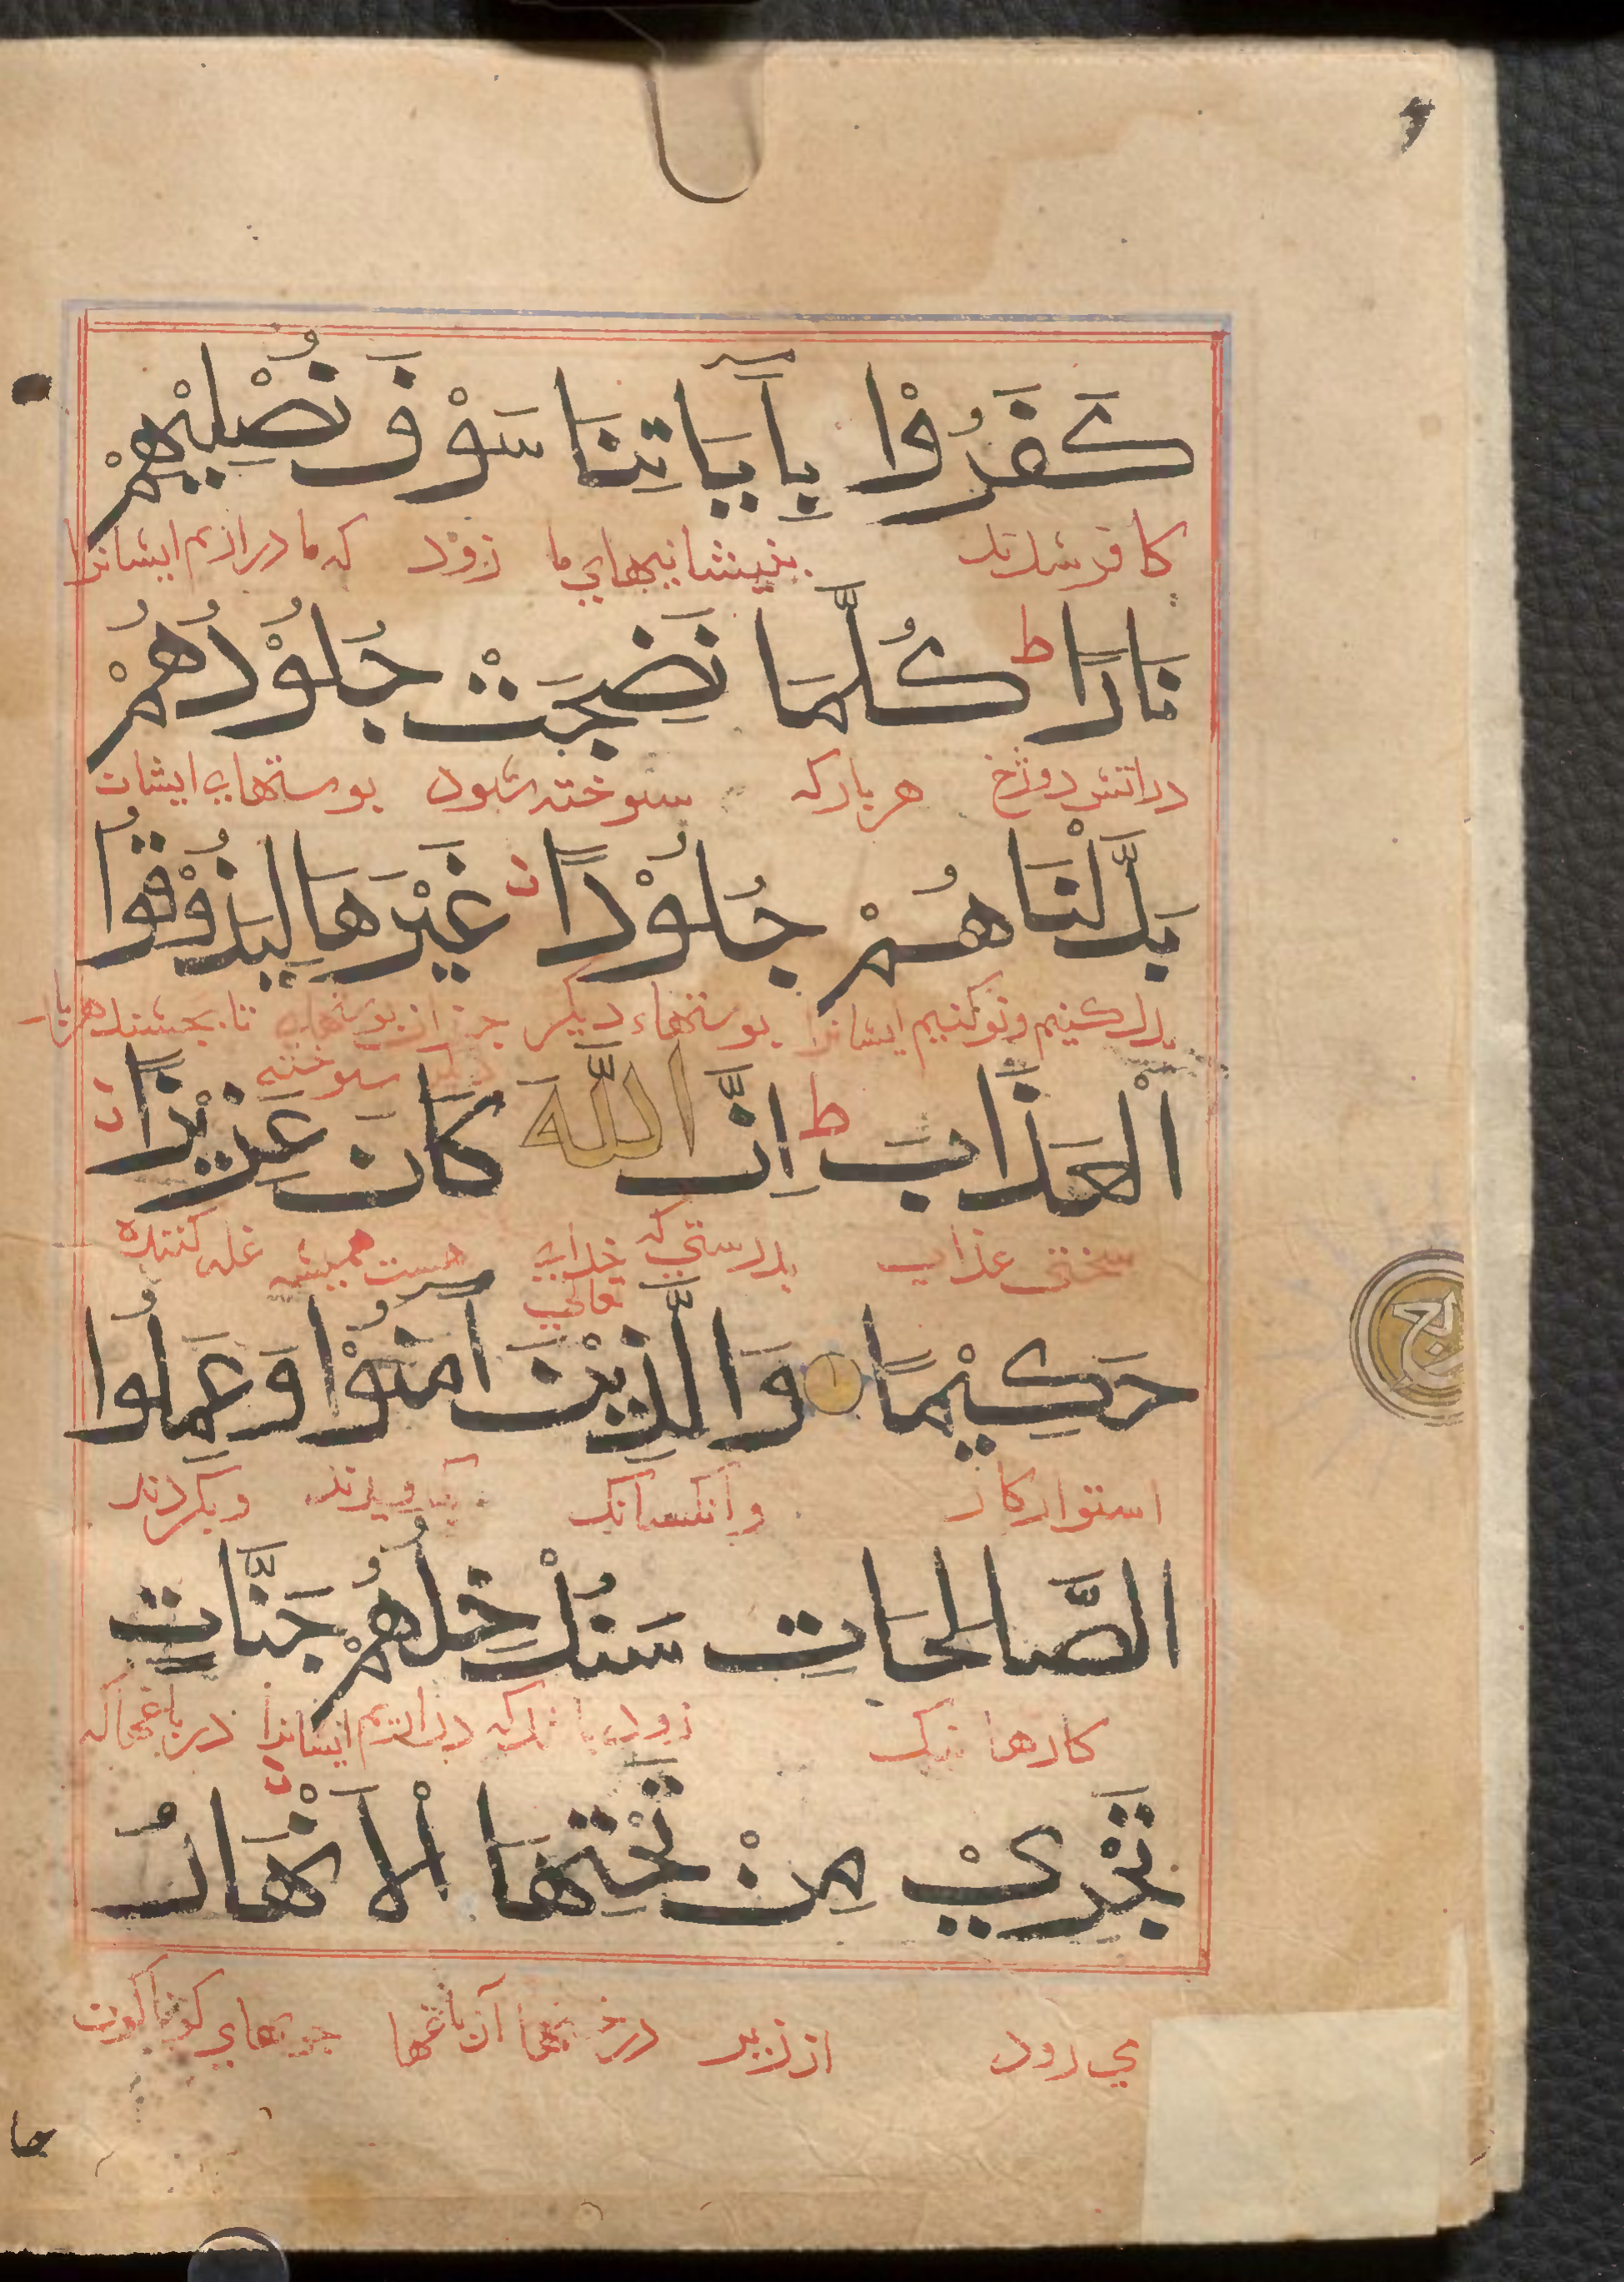 كَفَرُوْا بِاٰيَاتِنَا سَوْفَ نُصْلِيْهِمْ
كافر شدند بنیشانیهای ما زوٓد که ما دراریم ایشانرا
نَارًا ط كُلَّمَا نَضِجَتْ جُلُوْدُهُمْ
دراتش دوزخ هر بارکه سوخته شود بوستهای ایشان
بَدَّلْنَاهُمْ جُلُوْدًا غَيْرَهَا لِيَذُوْقُوا
بدل کنیم ونو کنیم ایشانرا بوستهاء دیکر جز ازبوستهای تا بجشند هر بار
سوخته
اَلْعَذَابَ ط اِنَّ اللّٰهَ كَانَ عَزِيْزًا
سختی عذاب بدرستی که خدای تعالی هست همیشه غلبه کننده
حَكِيْمًا وَالَّذِيْنَ اٰمَنُوْا وَعَمِلُوا
استوار کار وانکسانک بکردند
الصَّالِحَاتِ سَنُدْخِلُهُمْ جَنَّاتٍ
کارها نیک زود باشد که دراریم ایشانرا در باغهاکه
تَجْرِيْ مِنْ تَحْتِهَا الْاَنْهَارُ
می رود از زیر درختها آن باغها جویهای کوناکون